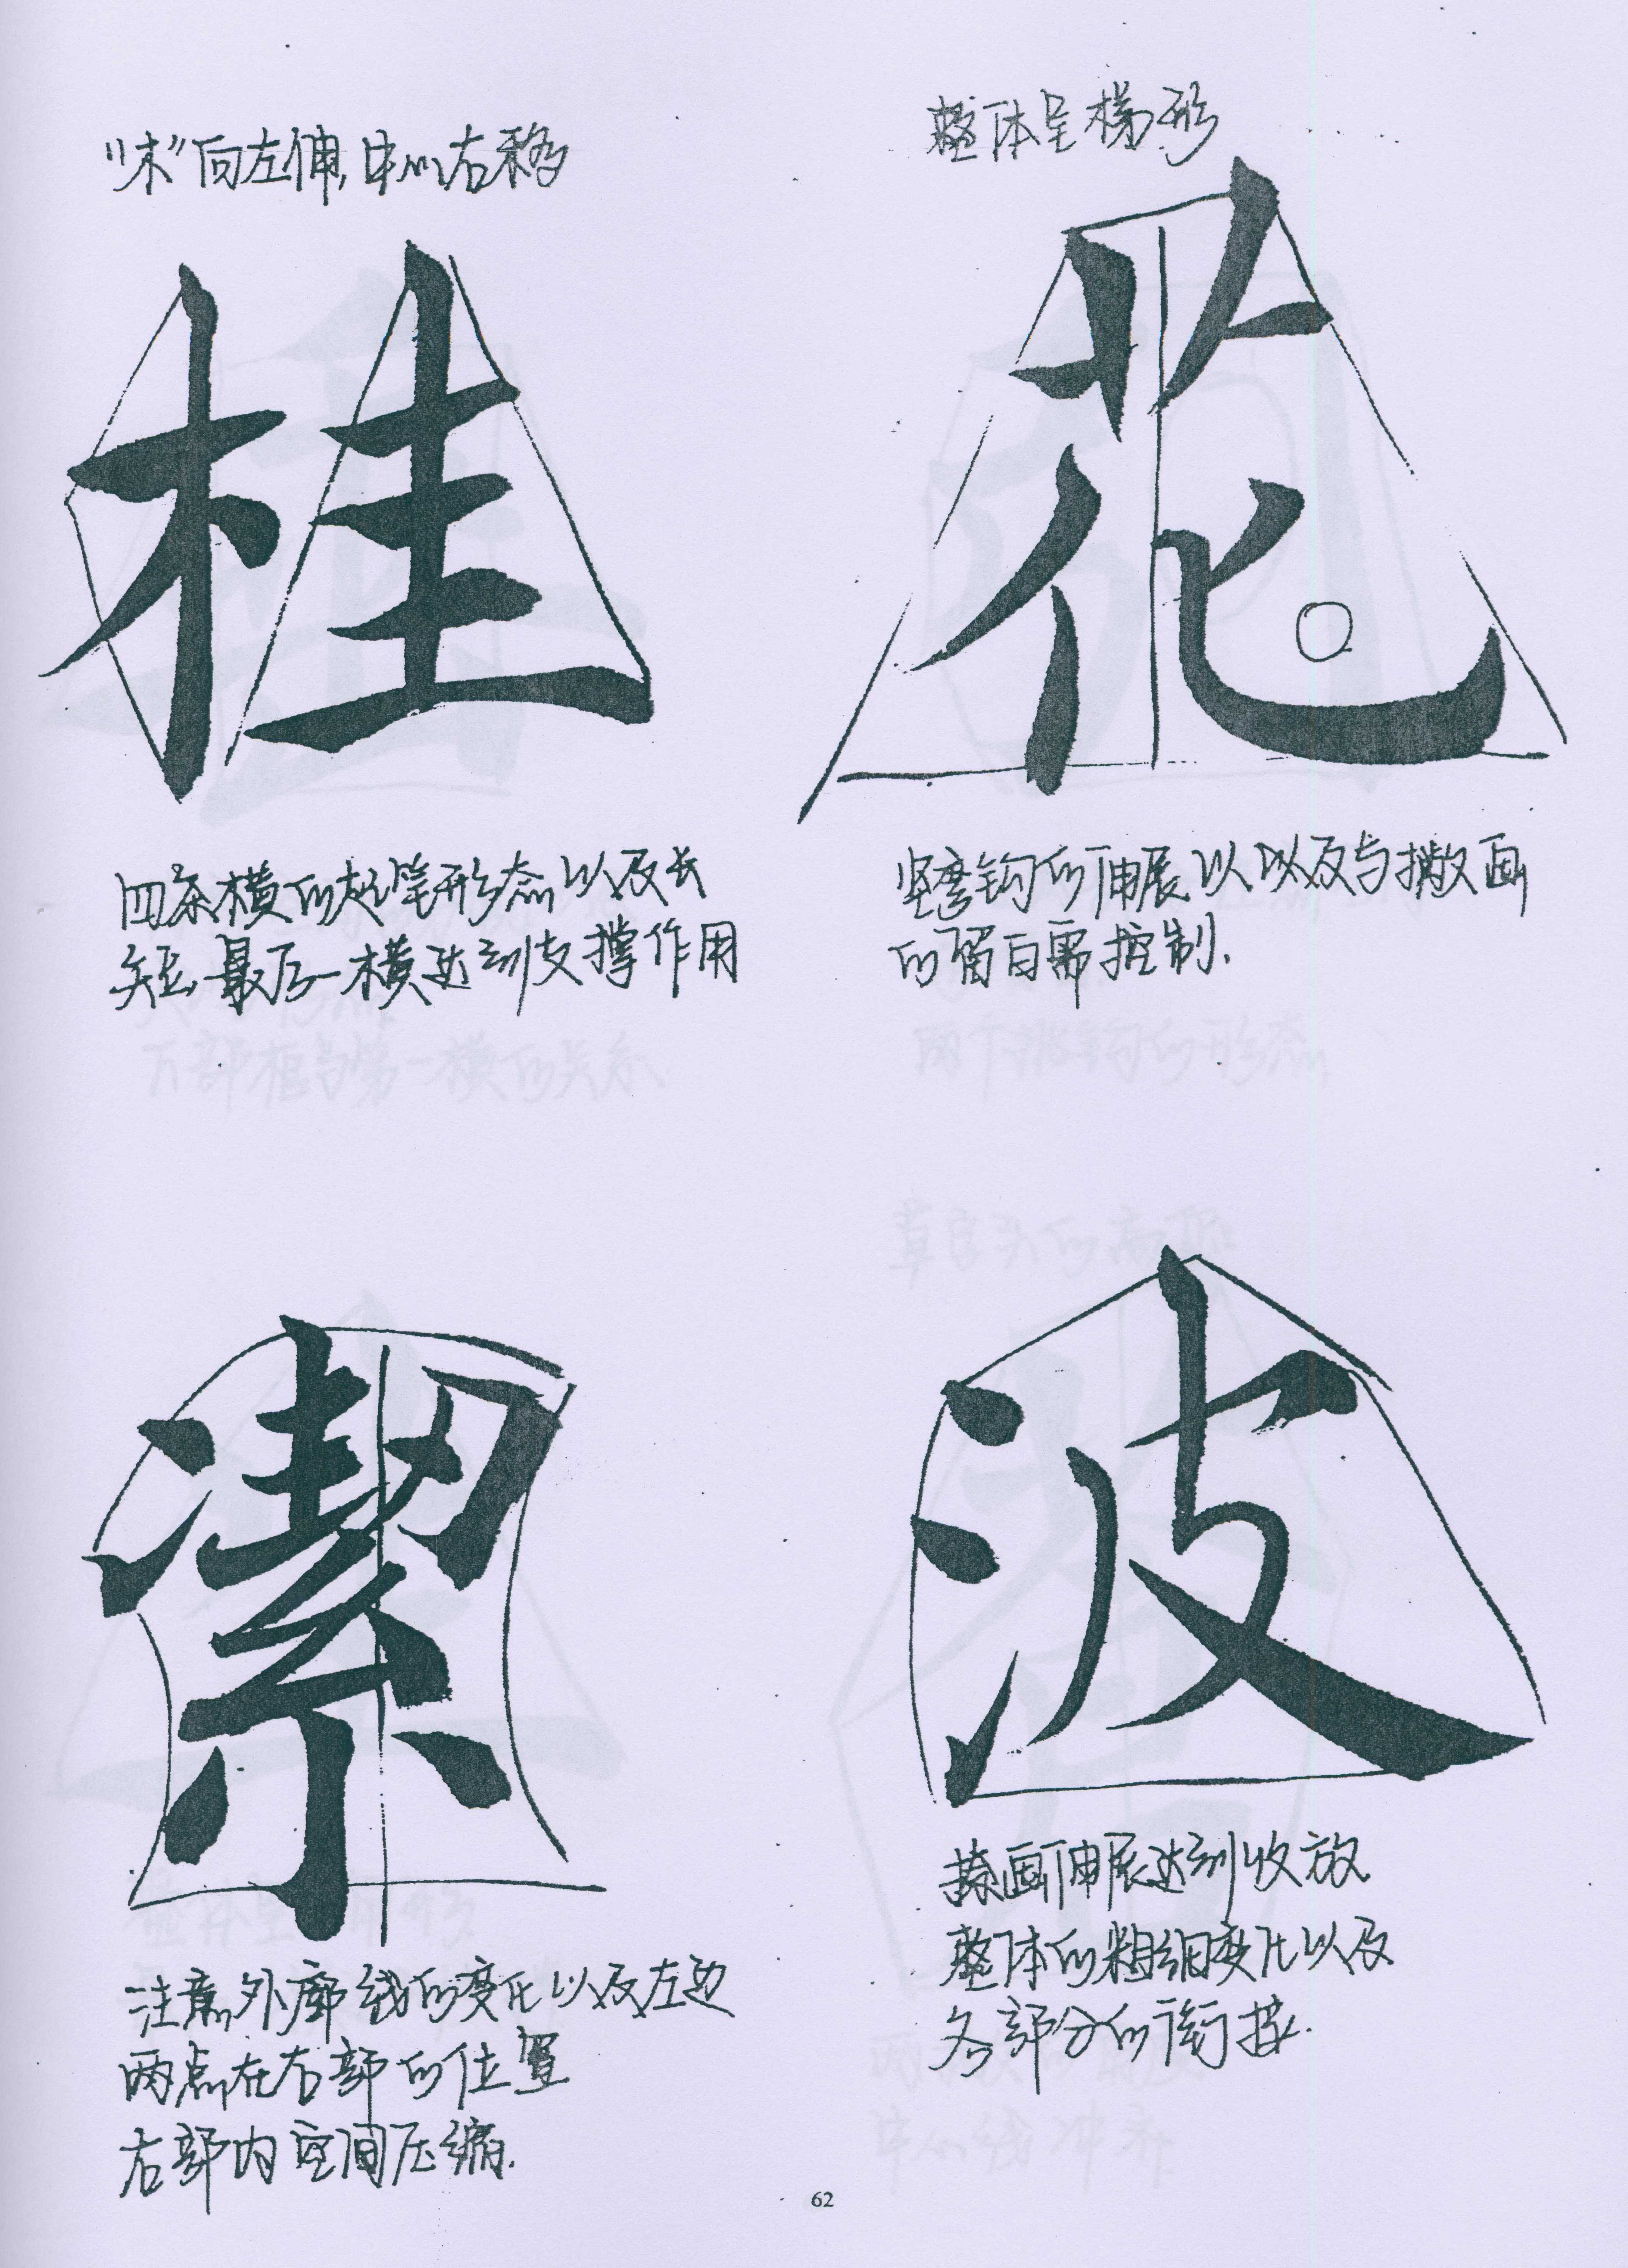 “木”向左伸,中心右移
桂
四条横的起笔形态以及长
短.最后一横达到支撑作用
整体呈梯形
花
竖弯钩的伸展以以及与撇画
的留白需控制.
潔
注意外廓线的变化以及左边
两点在右部的位置
右部内空间压缩.
波
捺画伸展达到收放
整体的粗细变化以及
各部分的衔接.
62